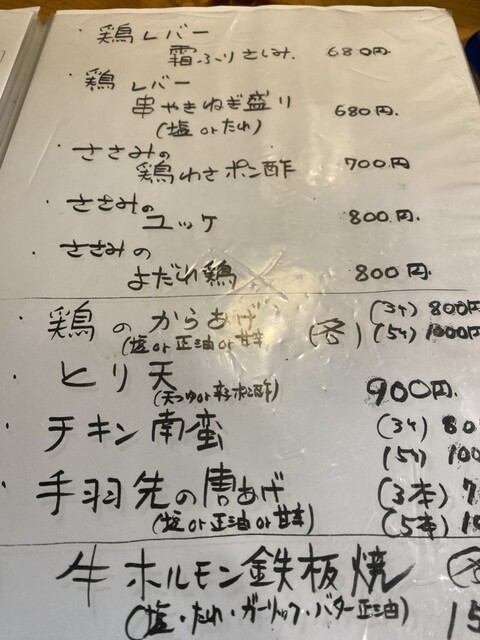 ・鶏レバー
霜ふりさしみ. 680円.
・鶏レバー
串やきねぎ盛り 680円.
(塩orたれ)
・ささみの
鶏わさポン酢 700円
・ささみの
ユッケ 800円.
・ささみの
よだれ鶏 800円.
・鶏のからあげ (各) (3ケ) 800円
(塩or正油or甘辛) (5ケ) 1000円
・とり天 900円.
(天つゆor ポン酢)
・チキン南蛮 (3ケ) 80
(5ケ) 100
・手羽先の唐あげ (3本) 7
(塩or正油or甘辛) (5本) 1
牛ホルモン鉄板焼 (各
(塩・たれ・ガーリック・バター正油) 15